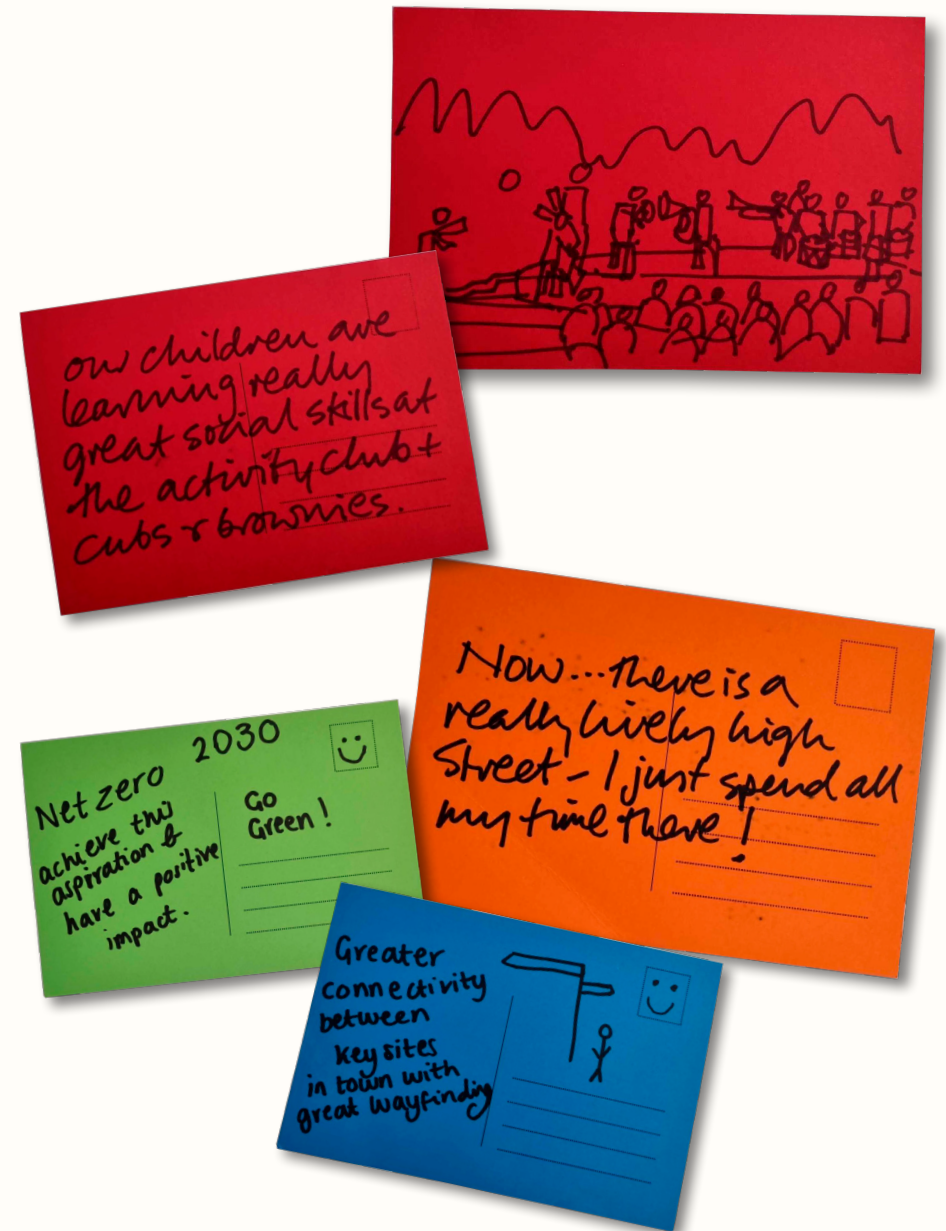 our children are
learning really
great social skills at
the activity club +
cubs & brownies.
Now...there is a
really lively high
Street - I just spend all
my time there!
2030
Net zero
achieve this
aspiration &
have a positive
impact.
Go
Green!
Greater
connectivity
between
key sites
in town with
great wayfinding